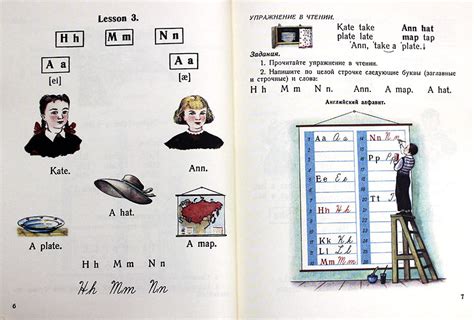 Lesson 3.
H h M m N n
A a A a
[ei] [æ]
Kate. Ann.
A hat.
A plate. A map.
H h M m N n
H h M m N n
6
УПРАЖНЕНИЕ В ЧТЕНИИ.
Kate take Ann hat
plate late map tap
'Ann, 'take a 'plate.
Задания.
1. Прочитайте упражнение в чтении.
2. Напишите по целой строчке следующие буквы (заглавные
и строчные) и слова:
H h M m N n. Ann. A map. A hat.
Английский алфавит.
Aa A a Nn N n
Pp P p
Ee E e
Tt T t
Hh H h
Kk K k
Ll L l
Mm M m
7